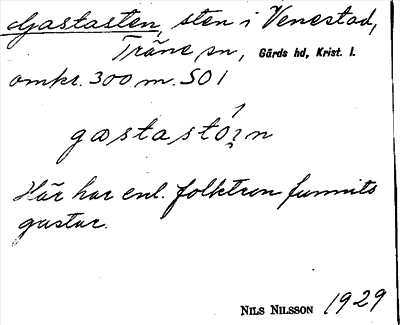 Gastasten, sten i Venestad,
Träne sn, Gärds hd, Krist. l.
omkr. 300 m. SO 1
gastastó2n
Här har enl. folktron funnits
gastar.
NILS NILSSON 1929